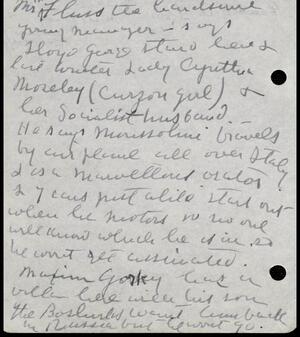 Mr Fluss the handsome
young manager – says
Lloyd George stayed here &
last winter Lady Cynthia
Moseley (Curzon girl) &
her Socialist husband. –
He says Mussolini travels
by air plane all over Italy
& is a marvellous orator
& 7 cars just alike start out
when he motors so no one
will know which he is in. so
he wont get assinated.
Maxim Gorky has a
villa here with his son
the Bosheviks want him back
in Russia but he wont go.